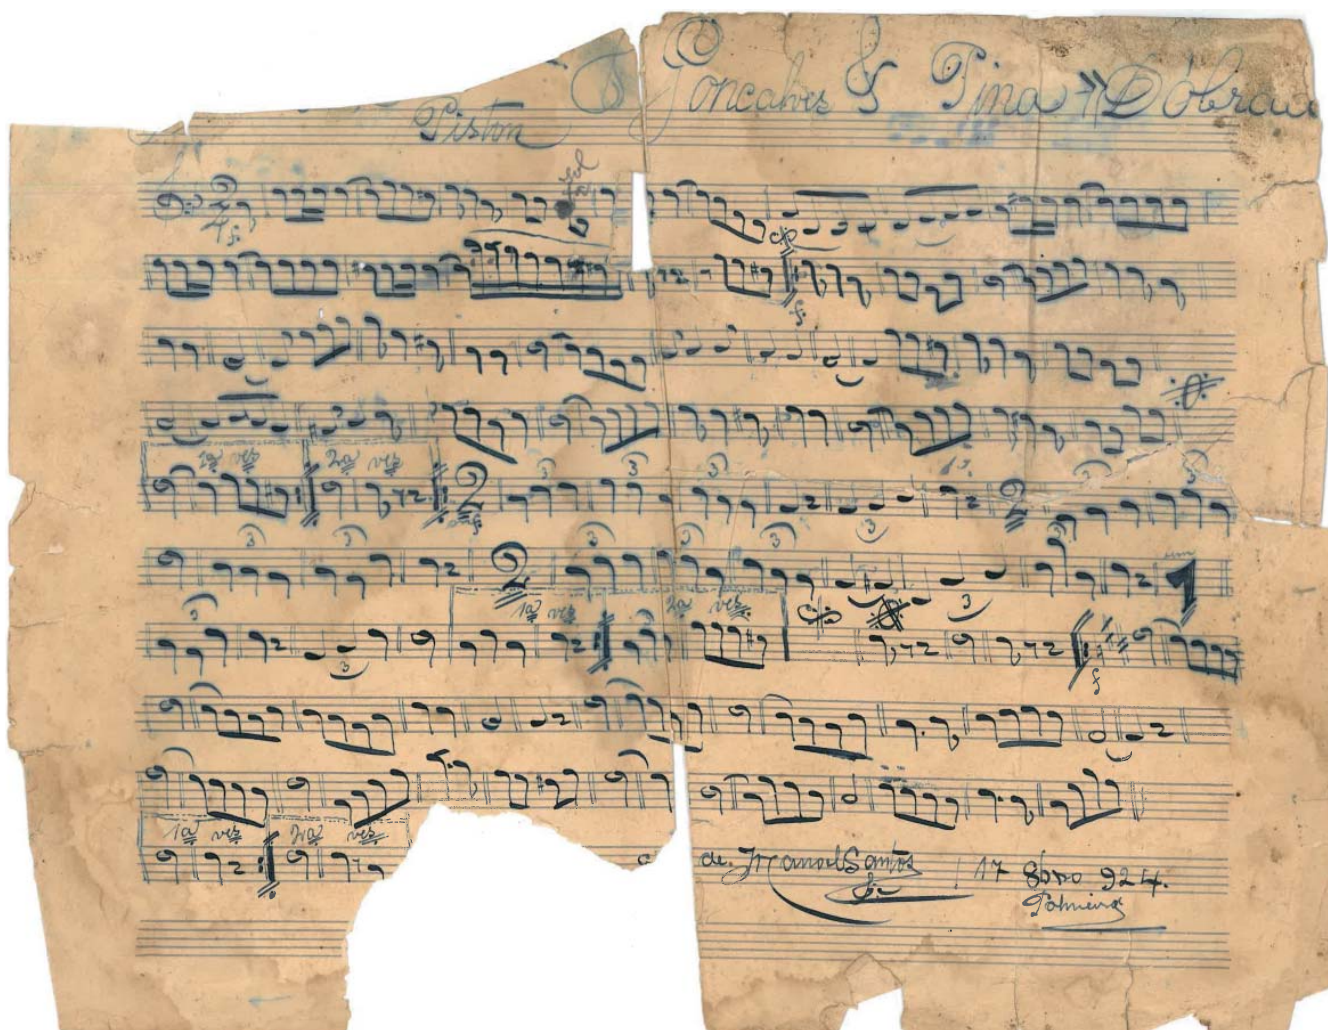 Goncalves & Pina » Dobrado
Piston
Sol
1a vez 2a vez
3 3 3 3 3
3
3 3 3 3 3 3
um
3
1a vez 2a vez
3 3
1a vez 2a vez
de Manoel Santos 17 8bro 924.
Palmeira